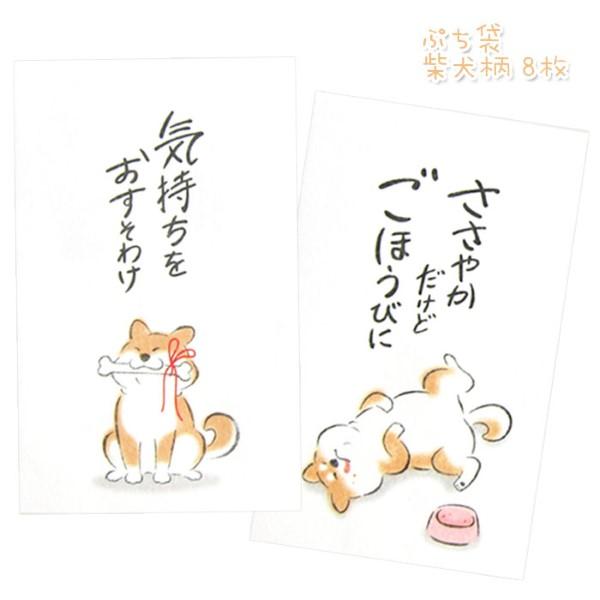 ぷち袋
柴犬柄 8枚
気持ちを
おすそわけ
ささやか
だけど
ごほうびに